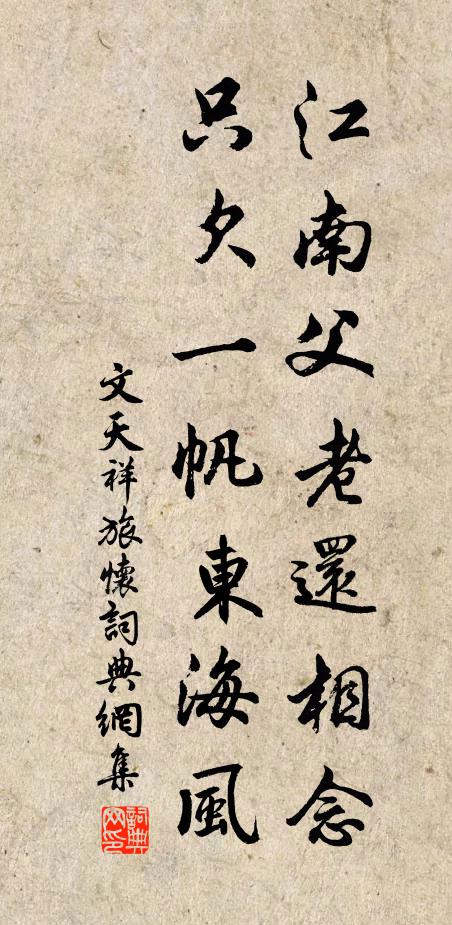 江南父老還相念
只欠一帆東海風
文天祥旅懷詞典網集
詞典網印